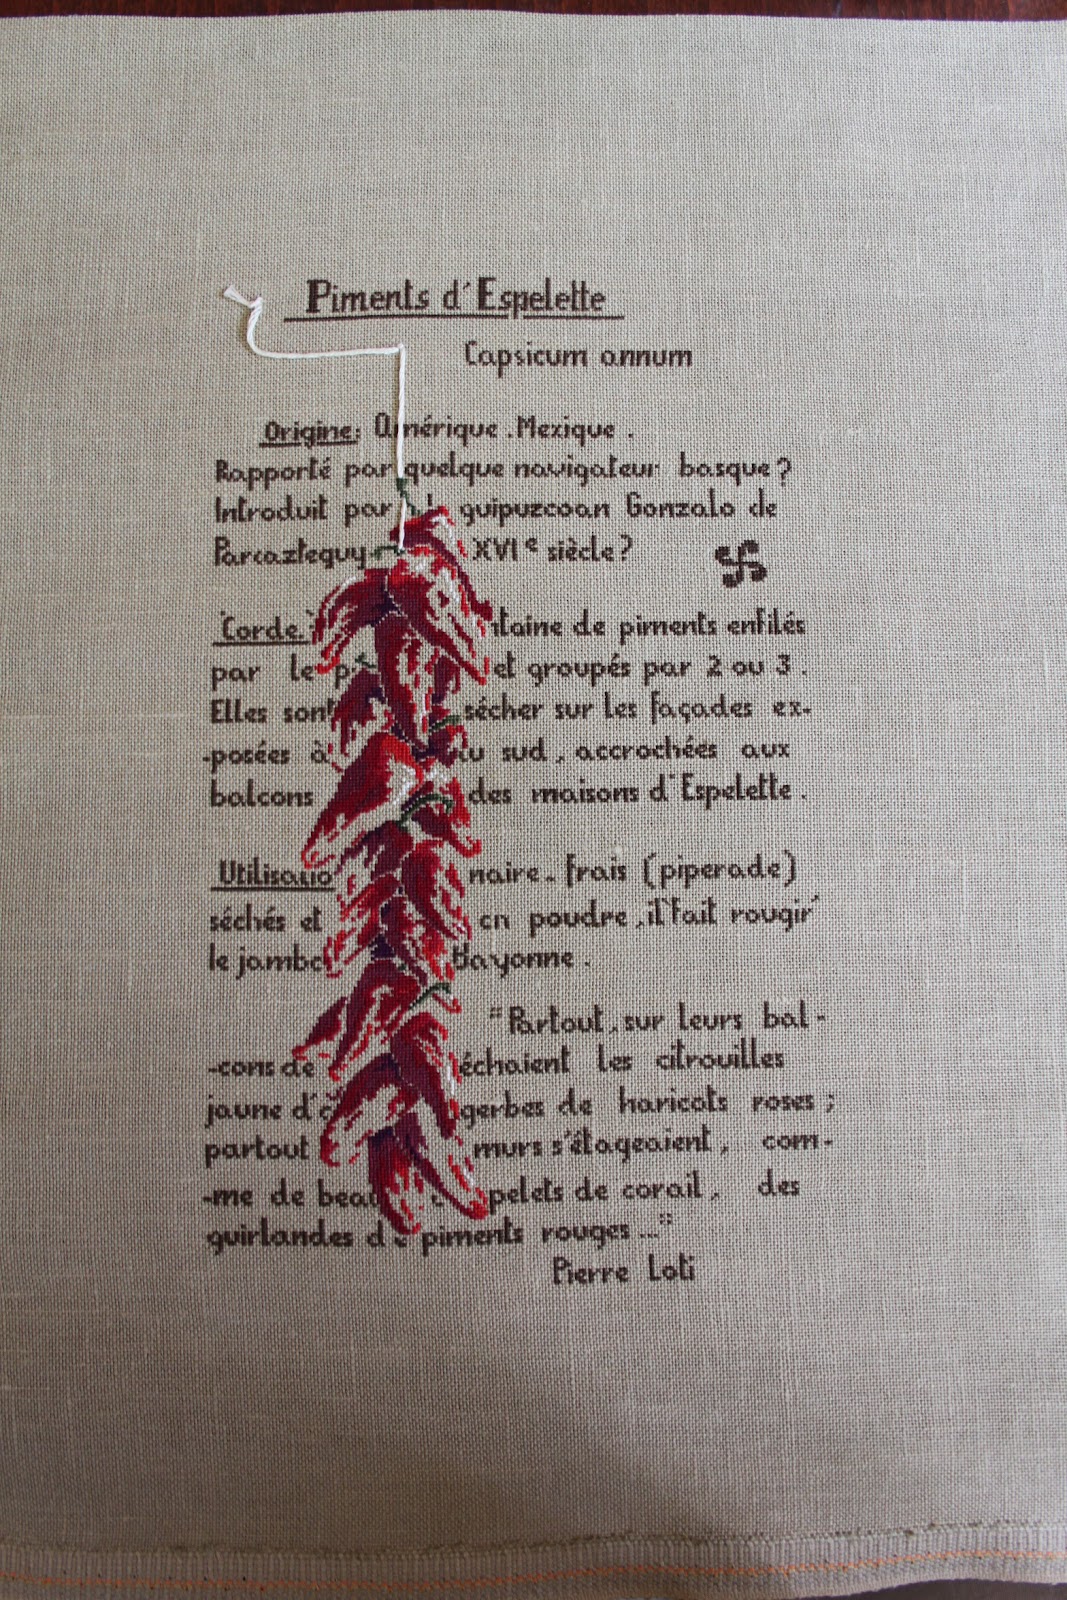 Piments d'Espelette
Capsicum annum
Origine: Amérique. Mexique.
Rapporté par quelque navigateur basque?
Introduit par guipuzcoan Gonzalo de
Parcaztequy XVIe siècle?
"Corde" de piments enfilés
par le et groupés par 2 ou 3.
Elles sont sécher sur les façades ex-
-posées à sud, accrochées aux
balcons des maisons d'Espelette.
Frais (piperade)
séchés et en poudre, il "fait rougir"
le Bayonne.
"Partout, sur leurs bal-
-cons de les citrouilles
jaune gerbes de haricots roses;
partout murs s'étageaient, com-
-me de de corail, des
guirlandes de piments rouges..."
Pierre Loti